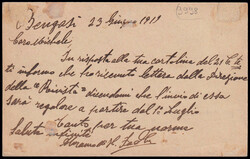 Bengasi, 23 Giugno 1919
Caro Michele,
In risposta alla tua cartolina del 21
ti informo che ho ricevuto lettera dalla Direzione
della "Rivista" dicendomi che l'invio di essa
sarà regolare a partire dal 1° Luglio
Tanto per tua norma
Saluti